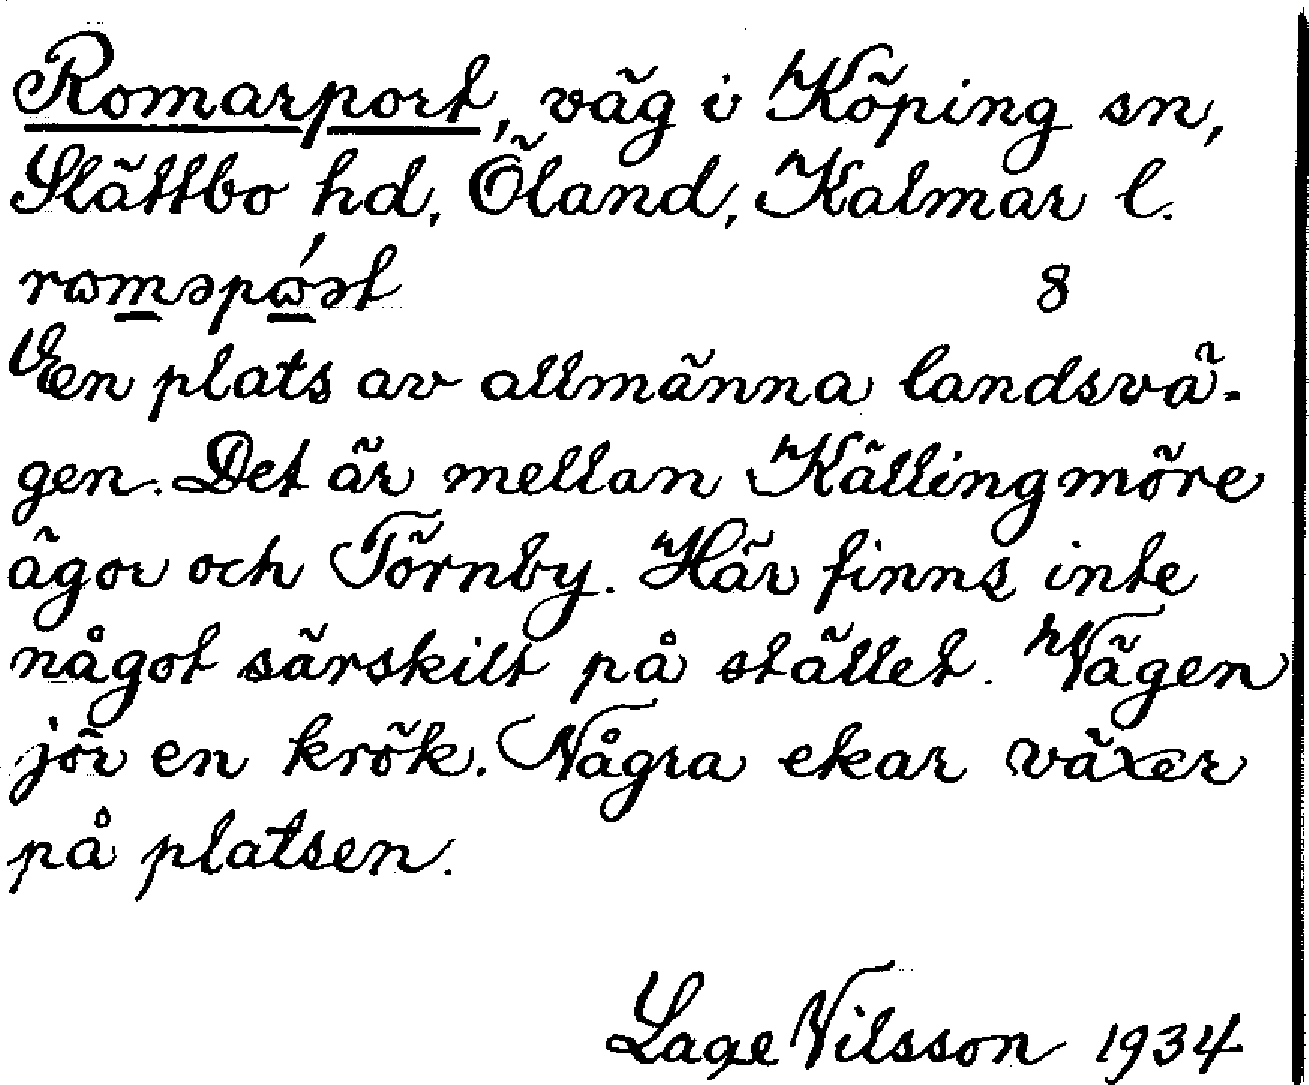 Romarport, väg i Köping sn,
Slättbo hd, Öland, Kalmar l.
8
En plats av allmänna landsvä-
gen. Det är mellan Källingmöre
ägor och Törnby. Här finns inte
något särskilt på stället. Vägen
jör en krök. Några ekar växer
på platsen.
Lage Nilsson 1934